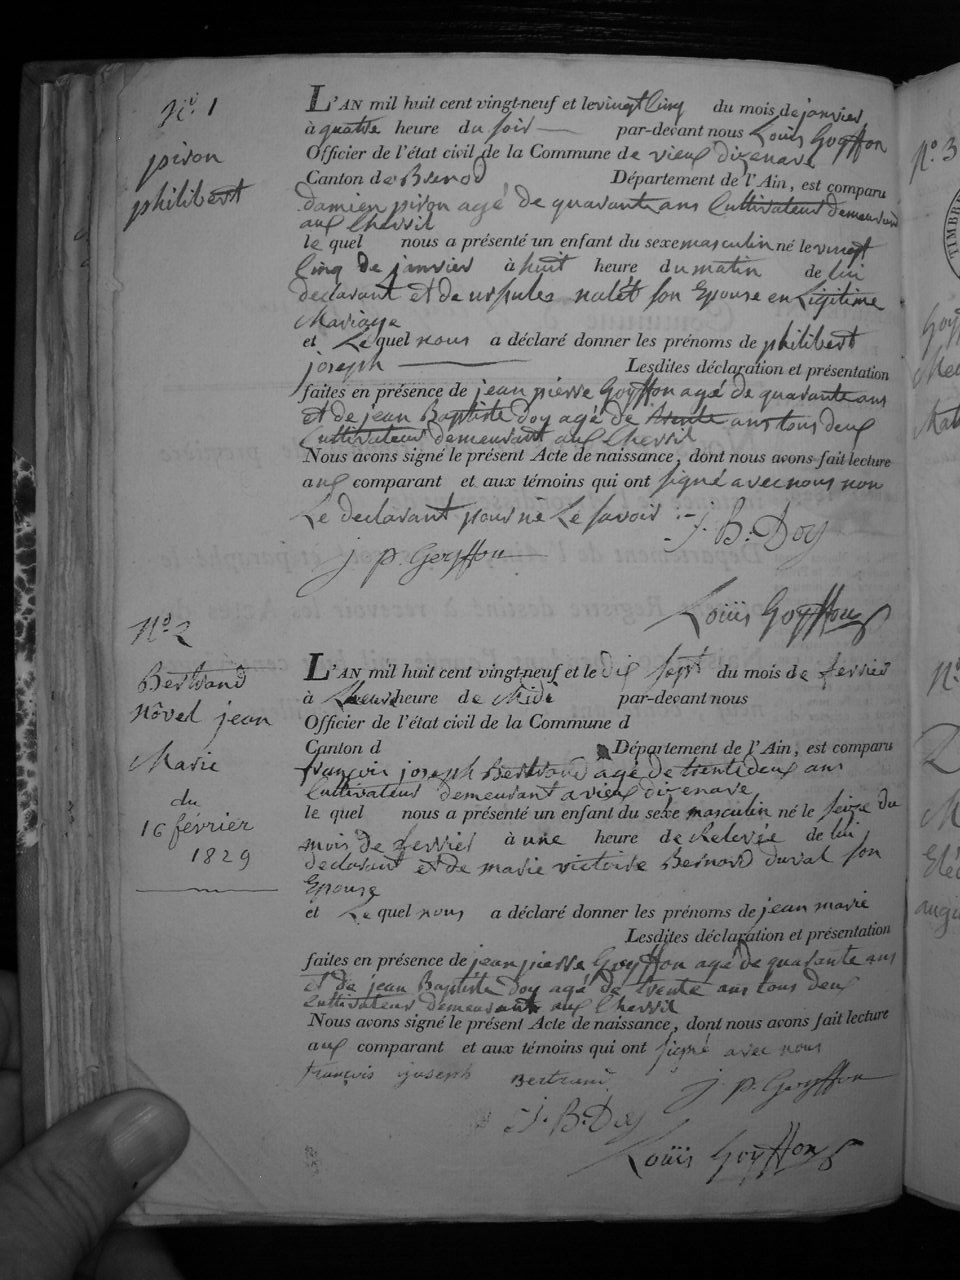 N.º 1
pison
philibert
L'AN mil huit cent vingt-neuf et le vingt cinq du mois de janvier
à quatre heure du soir par-devant nous Louis Goyffon
Officier de l'état civil de la Commune de vieux dizenave
Canton de Brenod Département de l'Ain, est comparu
damien pison agé de quarante ans Cultivateur demeurant
aux Lhessil
le quel nous a présenté un enfant du sexe masculin né le vingt
cinq de janvier à huit heure du matin de lui
declarant et de ursules nalét son Epouse en Ligitime
Mariage
et Le quel nous a déclaré donner les prénoms de philibert
joseph Lesdites déclaration et présentation
faites en présence de jean pierre Goyffon agé de quarante ans
et de jean Baptiste Doy agé de trente ans tous deux
Cultivateur demeurant aux Lhessil
Nous avons signé le présent Acte de naissance, dont nous avons fait lecture
aux comparant et aux témoins qui ont signé avec nous non
Le declarant pour ne Le savoir J. B. Doy
j p. Goyffon
Louis Goyffon
N.º 2
Bertrand
nôvel jean
Marie
du
16 février
1829
L'AN mil huit cent vingt-neuf et le dix sept du mois de fevrier
à heure de Midi par-devant nous
Officier de l'état civil de la Commune d
Canton d Département de l'Ain, est comparu
françois joseph Bertrand agé de trente deux ans
Cultivateur demeurant a vieux dizenave
le quel nous a présenté un enfant du sexe masculin né le seize du
mois de fevrier à une heure de Relevée de lui
declarant et de marie victoire Bernard duval son
Epouse
et Le quel nous a déclaré donner les prénoms de jean marie
Lesdites déclaration et présentation
faites en présence de jean pierre Goyffon agé de quarante ans
et de jean Baptiste Doy agé de trente ans tous deux
Cultivateur demeurant aux Lhessil
Nous avons signé le présent Acte de naissance, dont nous avons fait lecture
aux comparant et aux témoins qui ont signé avec nous
françois joseph Bertrand j p. Goyffon
J. B. Doy
Louis Goyffon
N.º 3
TIMBRE